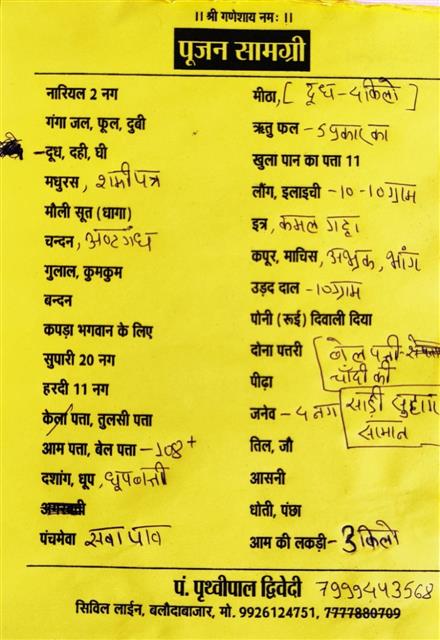 ।। श्री गणेशाय नमः ।।
पूजन सामग्री
नारियल 2 नग
गंगा जल, फूल, दुबी
दूध, दही, घी
मधुरस, शमीपत्र
मौली सूत (धागा)
चन्दन, अष्टगंध
गुलाल, कुमकुम
बन्दन
कपड़ा भगवान के लिए
सुपारी 20 नग
हरदी 11 नग
केला पत्ता, तुलसी पत्ता
आम पत्ता, बेल पत्ता - 108+
दशांग, धूप, धूपबत्ती
अगरबत्ती
पंचमेवा सवा पाव
मीठा, [दूध - 4 किलो]
ऋतु फल - 5 प्रकार का
खुला पान का पत्ता 11
लौंग, इलाइची - 10-10 ग्राम
इत्र, कमल गट्टा
कपूर, माचिस, अभ्रक, भांग
उड़द दाल - 10 ग्राम
पोनी (रूई) दिवाली दिया
दोना पत्तरी
बेल पत्ती
पीढ़ा
चाँदी की
जनेव - 4 नग
साड़ी सुहाग
सामान
तिल, जौ
आसनी
धोती, पंछा
आम की लकड़ी - 3 किलो
पं. पृथ्वीपाल द्विवेदी 7999443568
सिविल लाईन, बलौदाबाजार, मो. 9926124751, 7777880709